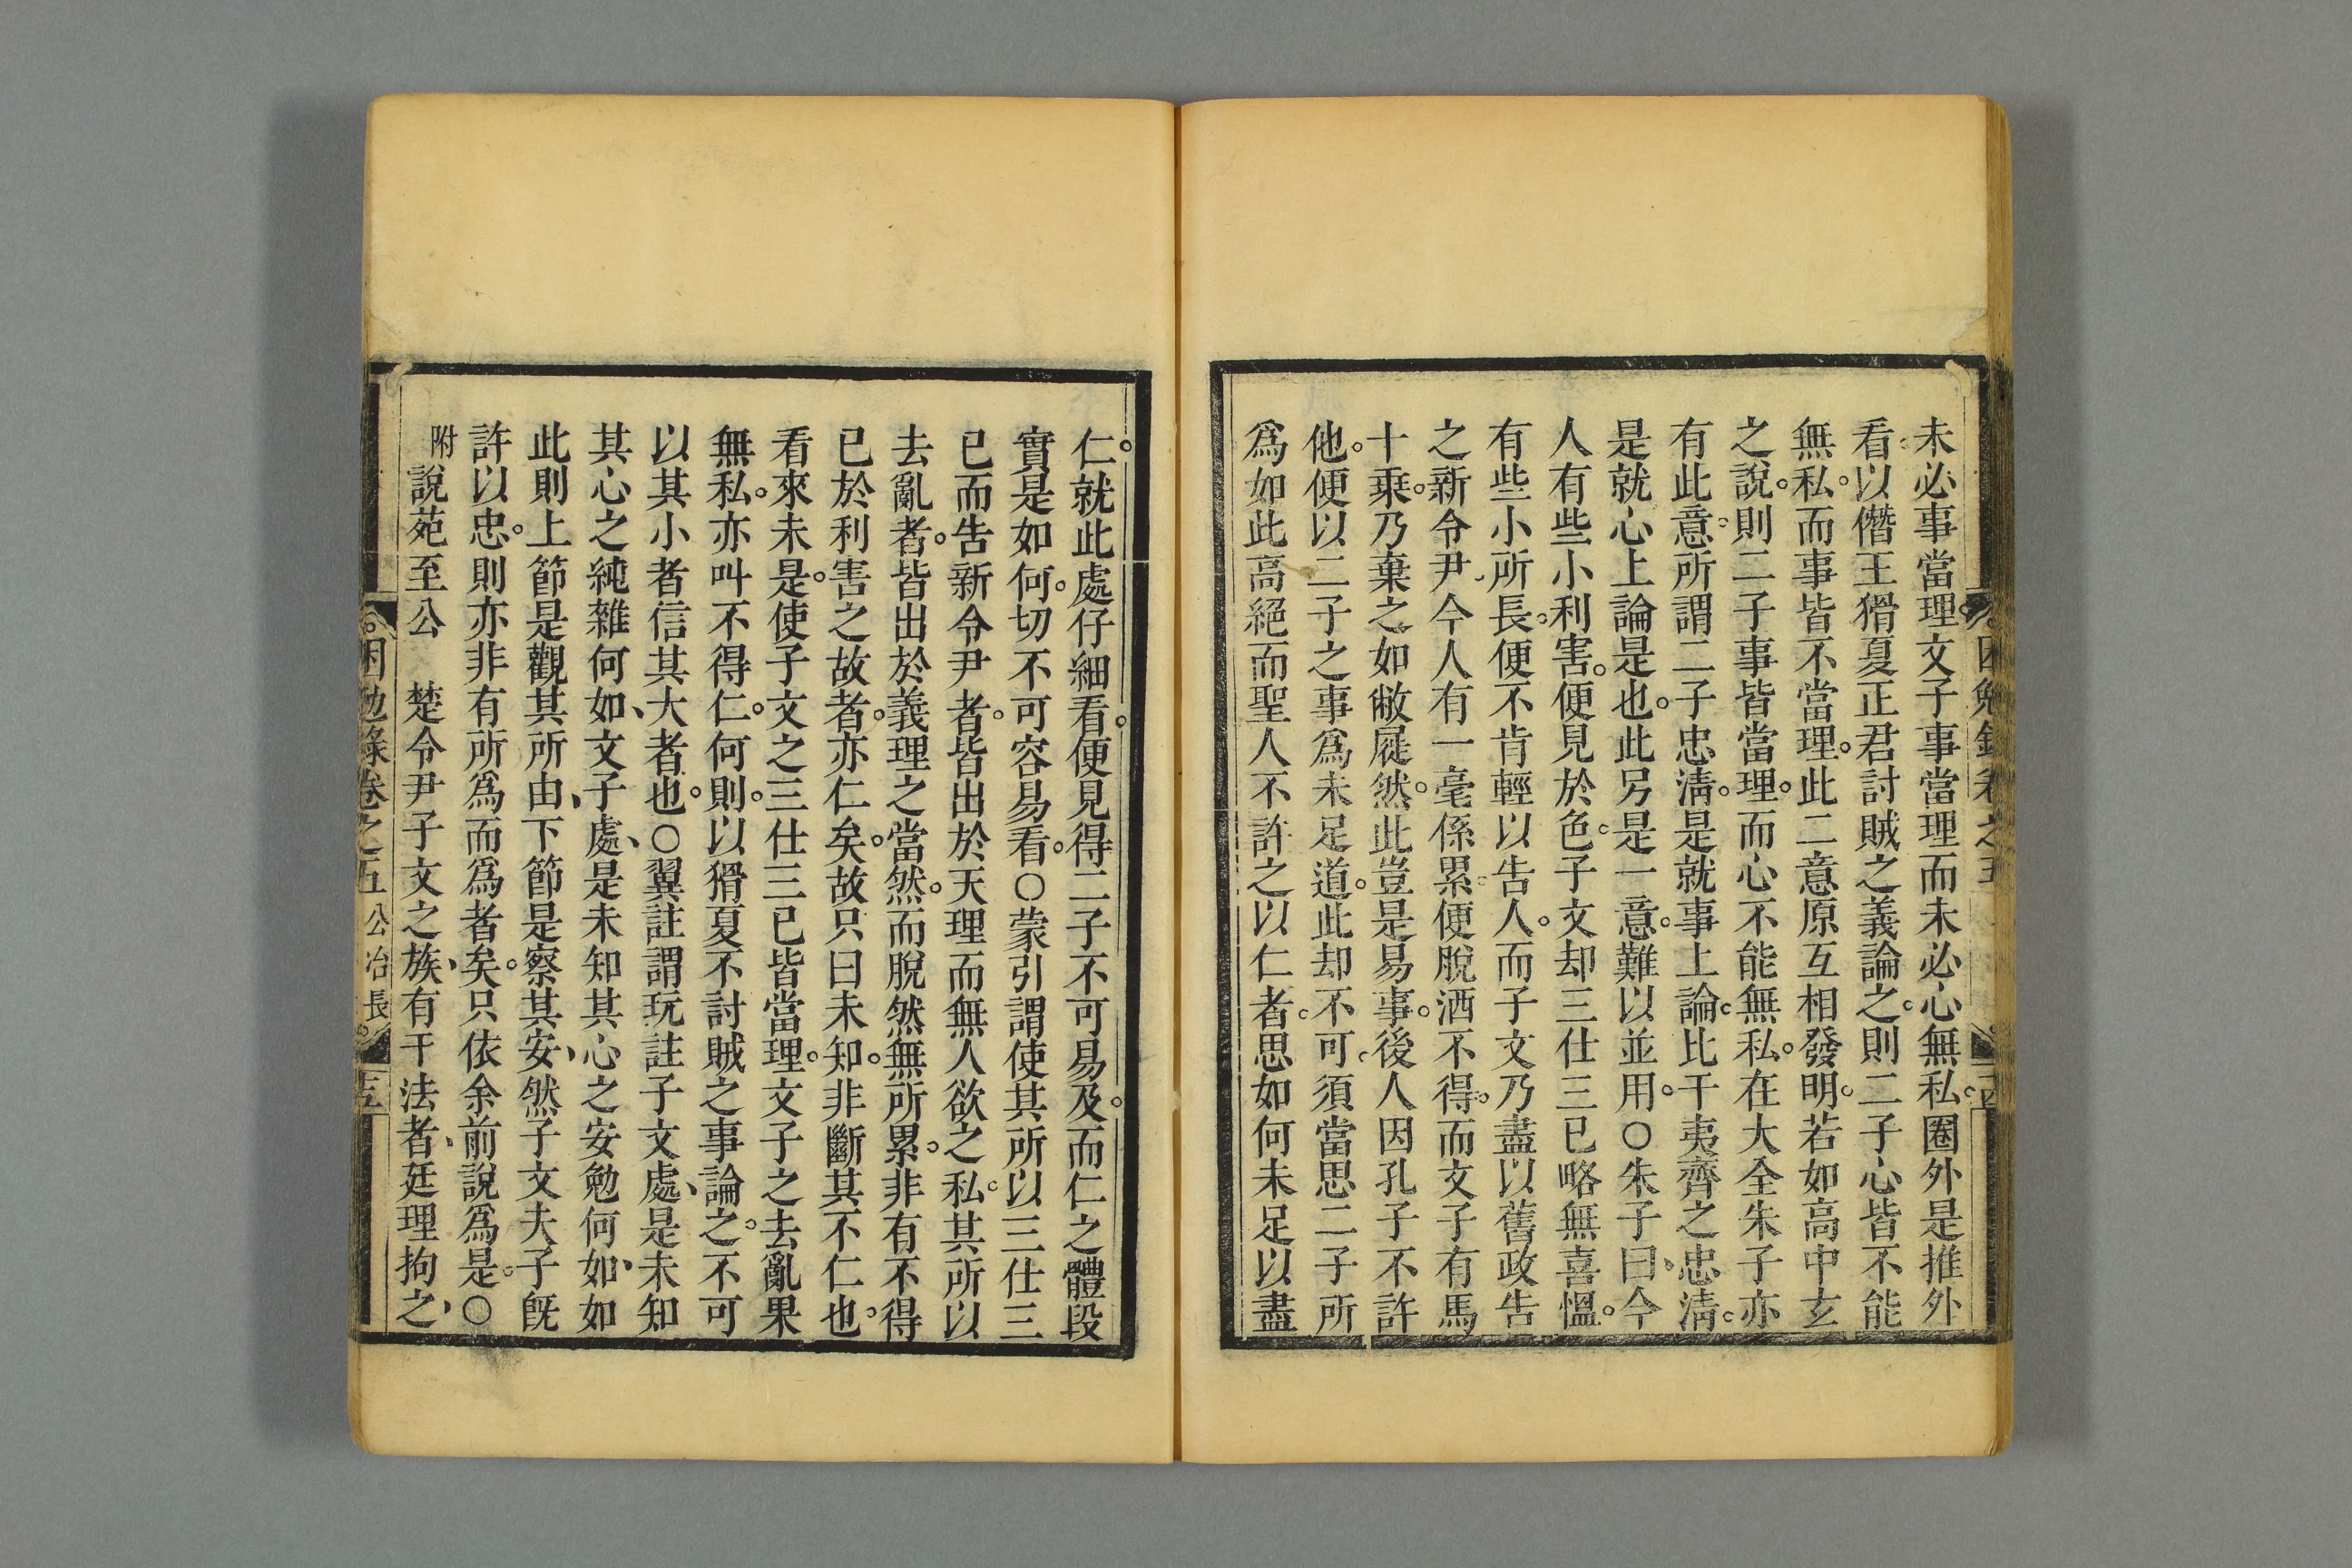 未必事當理。文子事當理而未必心無私。圈外是推外
看。以僭王猾夏正君討賊之義論之。則二子心皆不能
無私。而事皆不當理。此二意原互相發明。若如高中玄
之說。則二子事皆當理。而心不能無私。在大全朱子亦
有此意。所謂二子忠淸。是就事上論。比干夷齊之忠淸。
是就心上論是也。此另是一意。難以並用。○朱子曰、今
人有些小利害。便見於色。子文却三仕三已略無喜慍。
有些小所長。便不肯輕以告人。而子文乃盡以舊政告
之新令尹、今人有一毫係累。便脫洒不得。而文子有馬
十乘。乃棄之如敝屣然。此豈是易事。後人因孔子不許
他。便以二子之事爲未足道。此却不可。須當思二子所
爲如此高絕而聖人不許之以仁者。思如何未足以盡
仁。就此處仔細看。便見得二子不可易及。而仁之體段
實是如何。切不可容易看。○蒙引謂使其所以三仕三
已而告新令尹者。皆出於天理而無人欲之私。其所以
去亂者。皆出於義理之當然。而脫然無所累。非有不得
已於利害之故者。亦仁矣。故只曰未知。非斷其不仁也。
看來未是。使子文之三仕三已皆當理。文子之去亂果
無私。亦叫不得仁。何則。以猾夏不討賊之事論之。不可
以其小者信其大者也。○翼註謂玩註子文處、是未知
其心之純雜何如、文子處、是未知其心之安勉何如、如
此則上節是觀其所由、下節是察其安、然子文夫子旣
許以忠。則亦非有所爲而爲者矣。只依余前說爲是。○
附說苑至公　楚令尹子文之族、有干法者、廷理拘之、
困勉錄卷之五　公冶長